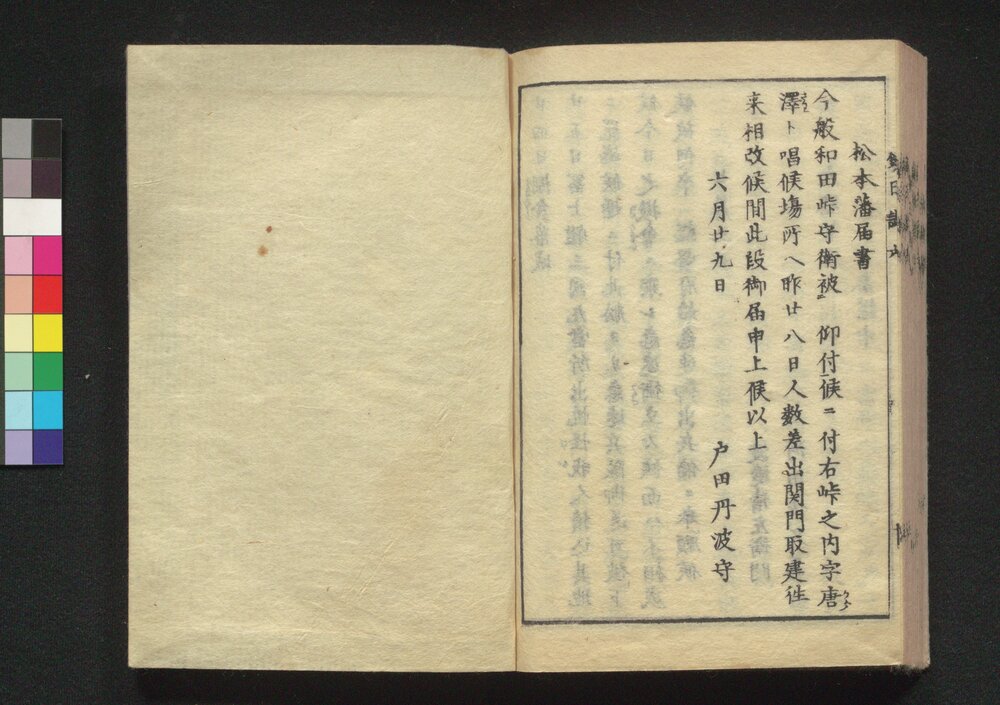 松本藩届書
今般和田峠守衛被 仰付候ニ付右峠之内字唐
澤ト唱候場所ヘ昨廿八日人数差出関門取建往
来相改候間此段御届申上候以上
六月廿九日
戸田丹波守